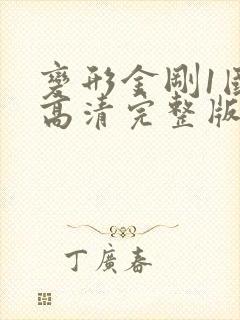 變形金剛1國
高清完整版
丁廣春